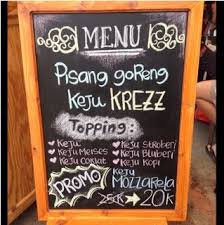 MENU
Pisang goReng
Keju KREZZ
Topping :
Keju
Keju Meises
Keju Coklat
Keju Stroberi
Keju Bluberi
Keju Kopi
PROMO
Keju
MOZZARELA
25K → 20K